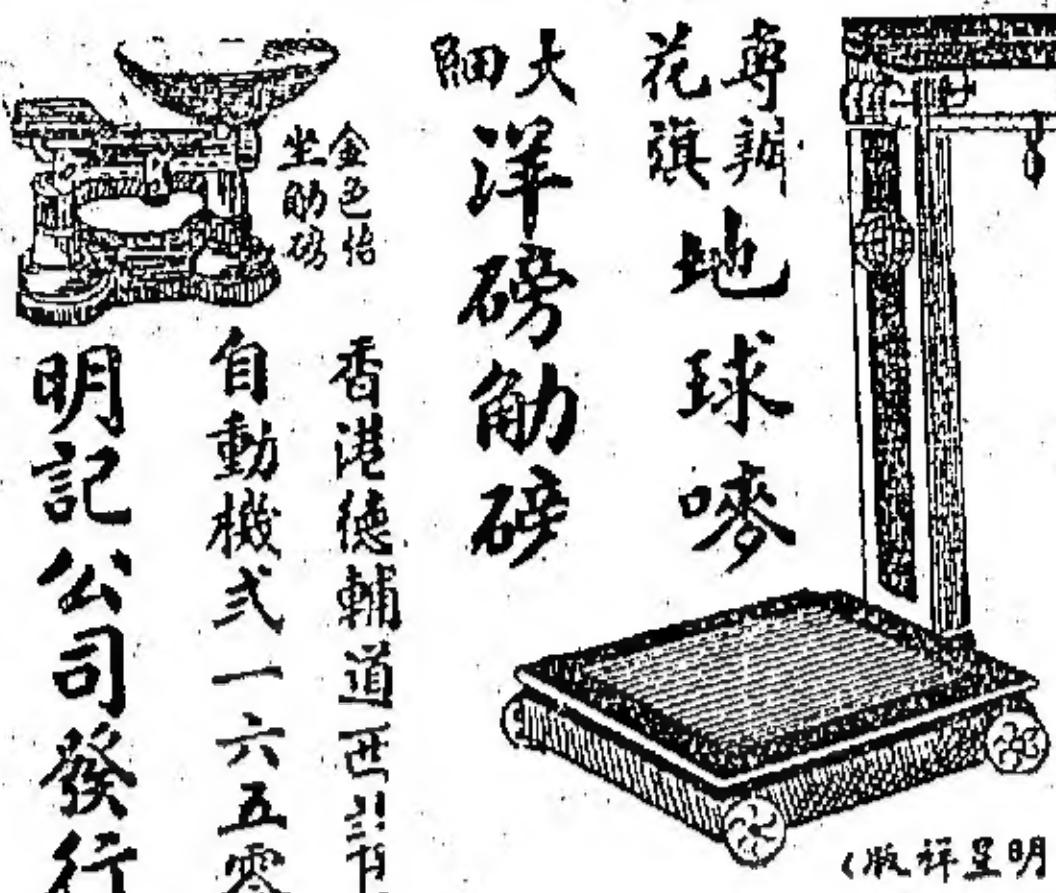 專辦
花旗
地球嘜
大
細
洋磅觔磅
金色怡
坐觔磅
香港德輔道西
自動機弍一六五零
明記公司發行
明星祥版